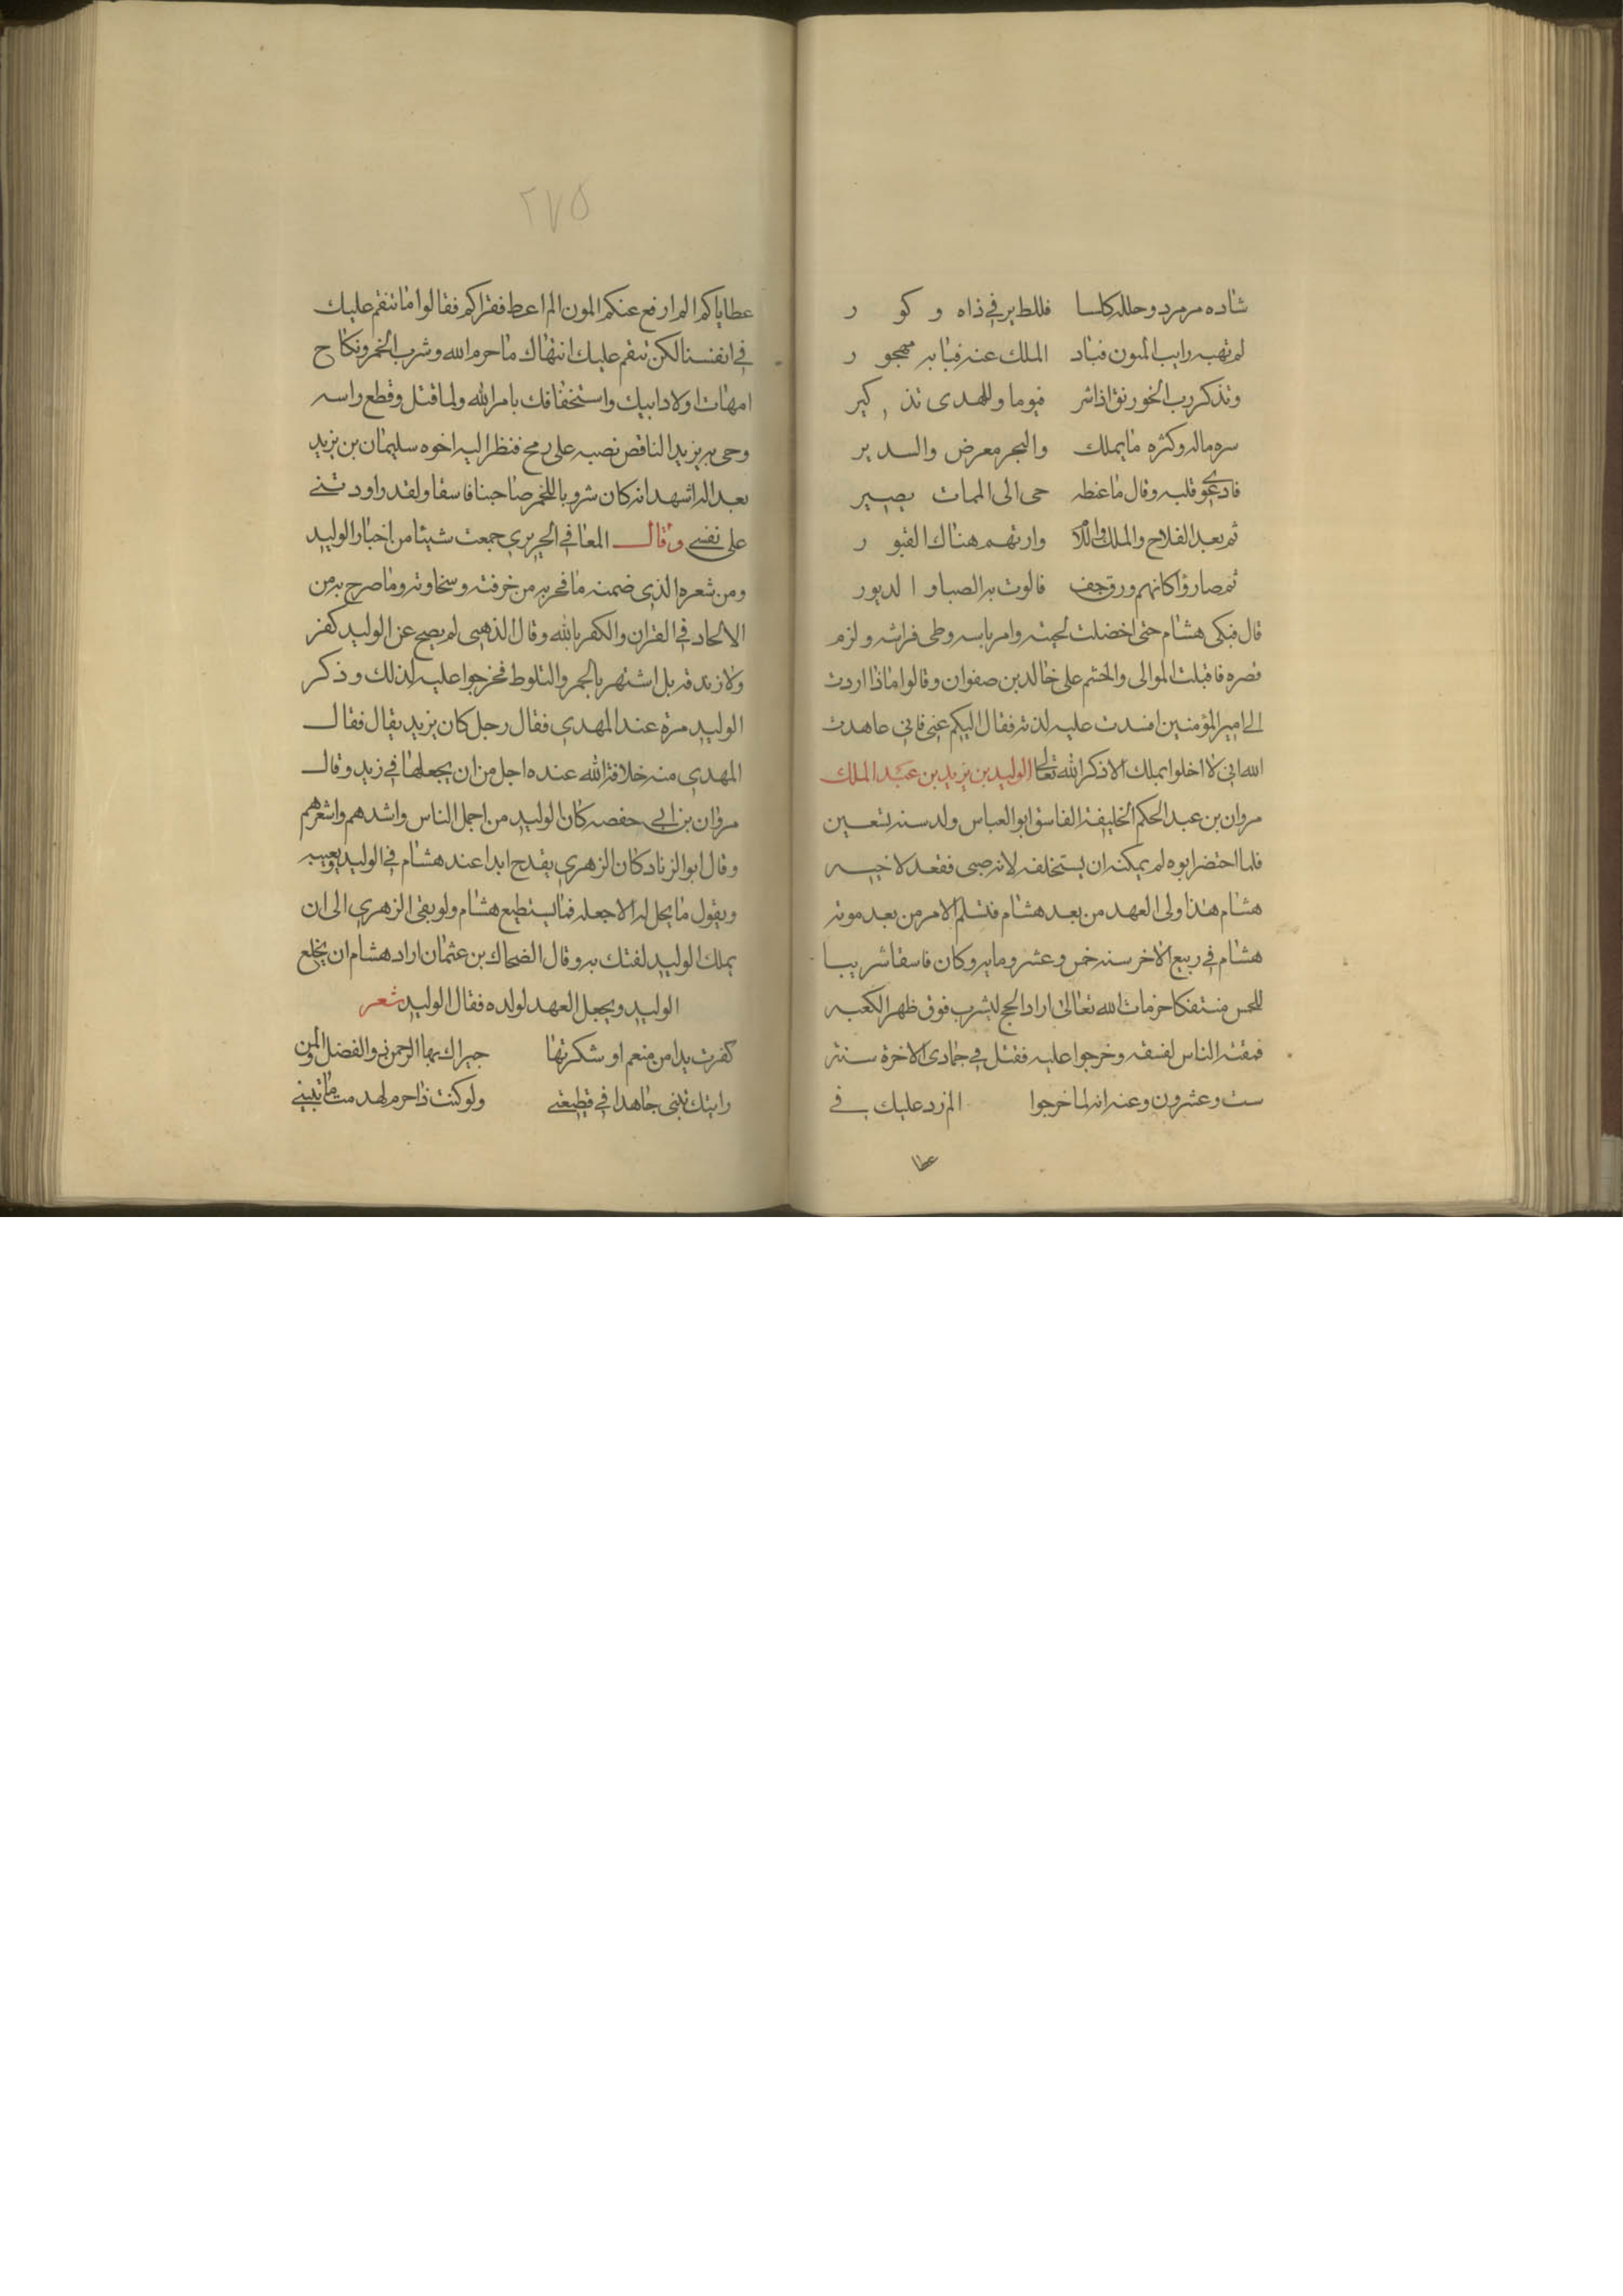 شاده مرمرد وحلله كلسا فللطير في ذاه و كو ر
لم تهبه رايب المنون فباد الملك عنه فبابه مهجو ر
وتذكر رب الخورنق اذا شر فيوما وللهدى تذ كير
سره ماله وكثره ما يملك والبحر معرض والسد ير
قلبه وقال ما غبطه حى الى الممات يصير
ثم بعد الفلاح والملك وارتهم هناك القبو ر
ثم صاروا كانهم ورق جف فالوت به الصبا و الدبور
قال فبكى هشام حتى اخضلت لحيته وامر باسه وطى فراشه ولزم
قصره فاقبلت الموالى والحشم على خالد بن صفوان وقالوا ماذا اردت
الي امير المؤمنين افسدت عليه لذته فقال اليكم عني فاني عاهدت
الله اني لا اخلوا بملك الا ذكر الله تعالى الوليد بن يزيد بن عبد الملك
مروان بن عبد الحكم الخليفة الفاسق ابو العباس ولد سنه تسعين
فلما احتضر ابوه لم يمكنه ان يستخلفه لانه صبى فقعد لاخيه
هشام هذا ولى العهد من بعد هشام فتسلم الامر من بعد موته
هشام في ربيع الاخر سنه خمس وعشر ومايه وكان فاسقا شريبا
للخمر منتفكا حزمات الله تعالى اراد الحج ليشرب فوق ظهر الكعبه
فمقته الناس لفسقه وخرجوا عليه فقتل في جمادى الاخرة سنته
ست وعشرون وعنه انه لما خرجوا الم زد عليك في
عطا
٢٧٥
عطاياكم الم ارفع عنكم المون الم اعط فقراكم فقالوا ما ننقم عليك
في انفسنا لكن ننقم عليك انتهاك ما حرم الله وشرب الخمر ونكاح
امهات اولاد ابيك واستخفافك بامر الله ولما قتل وقطع راسه
وحى به يزيد الناقص نصبه على رمح فنظر اليه اخوه سليمان بن يزيد
بعد اله اشهد انه كان شروبا للخمر صاجنا فاسقا ولقد راود تني
على نفسي وقال المعافي الجريري جمعت شيئا من اخبار الوليد
ومن شعره الذي ضمنه ما فجر به من خرفته وسخاوته وما صرح به من
الالحاد في القران والكفر بالله وقال الذهبي لم يصح عن الوليد كفر
ولا زندقه بل اشتهر بالخمر والتلوط فخرجوا عليه لذلك وذكر
الوليد مرة عند المهدي فقال رجل كان يزيد يقال فقال
المهدي منه خلافة الله عنده اجل من ان يجعلها في زيد وقال
مروان بن ابي حفصه كان الوليد من اجمل الناس واشدهم واشعرهم
وقال ابو الزناد كان الزهري يقدح ابدا عند هشام في الوليد ويعيبه
ويقول ما يحل له الا جعله فما يستطيع هشام ولو بقى الزهري الى ان
يملك الوليد لفتك به وقال الضحاك بن عثمان اراد هشام ان يخلع
الوليد ويجعل العهد لولده فقال الوليد شعر
كفرت يدا من منعم او شكرتها جزاك بها الرحمن ذو الفضل والمن
رايتك تبني جاهدا في قطيعتي ولو كنت ذا حزم لهدمت ما تبني